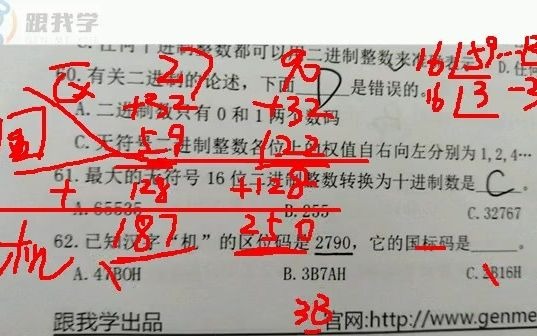 跟我学
C.任何十进制整数都可以用二进制整数来准确表示 D.任何
60.有关二进制的论述，下面 D 是错误的。
A.二进制数只有 0 和 1 两个数码
C.无符号二进制整数各位上的权值自右向左分别为 1,2,4…
61.最大的无符号 16 位二进制整数转换为十进制数是 C 。
A.65535 B.255 C.32767
62.已知汉字“机”的区位码是 2790，它的国标码是____。
A.47B0H B.3B7AH C.2B16H
区 27 90
国 +32 +32
59 122
+ 128 +128
机 187 250
16 59
16 3
3B
跟我学出品 官网:http://www.genme